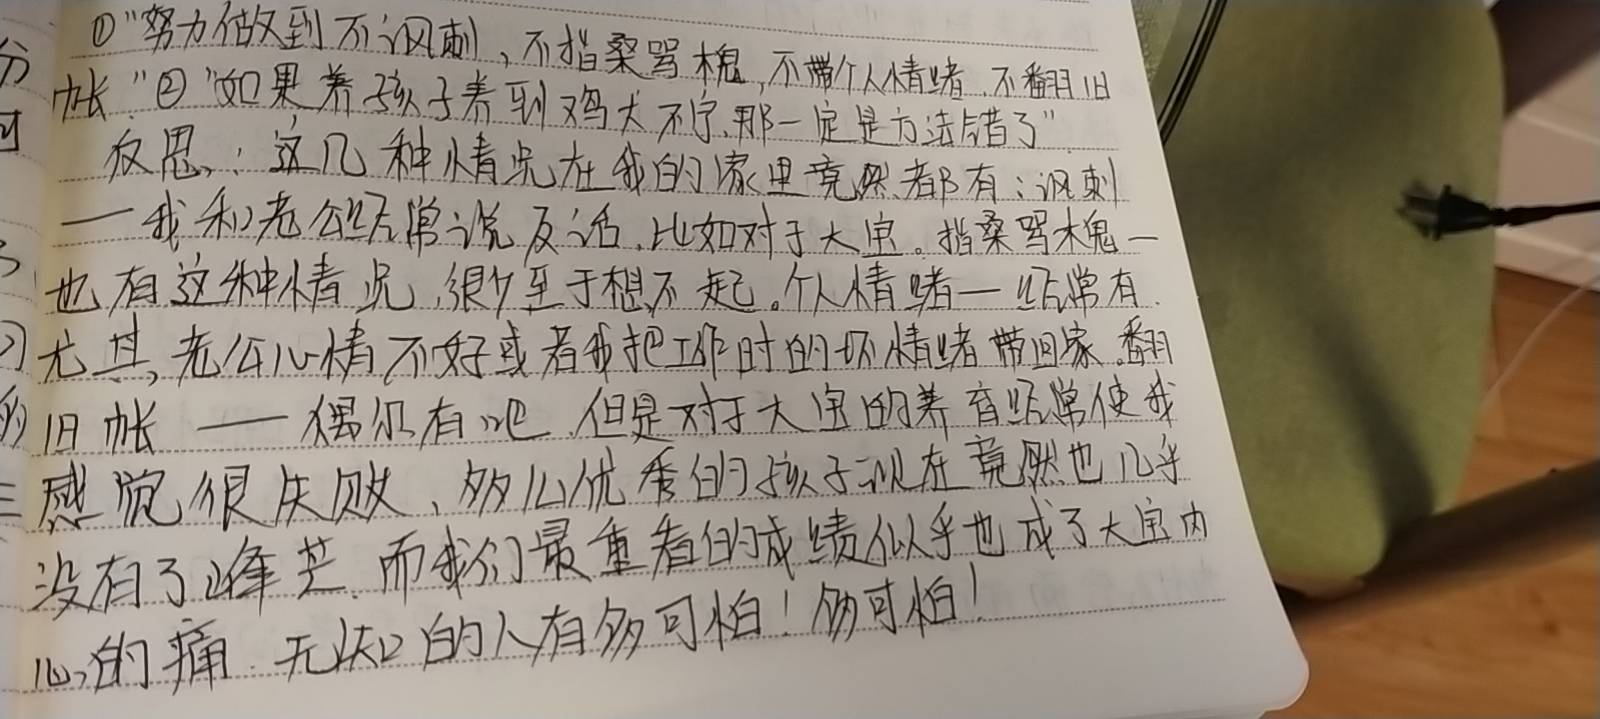 ①"努力做到不讽刺、不指桑骂槐,不带个人情绪、不翻旧
帐"②"如果养孩子养到鸡犬不宁、那一定是方法错了"
反思:这几种情况在我的家里竟然都有:讽刺
——我和老公经常说反话、比如对于大宝。指桑骂槐—
也有这种情况,很少至于想不起。个人情绪—经常有.
尤其,老公心情不好或者我把工作时的坏情绪带回家。翻
旧帐——偶尔有吧.但是对于大宝的养育经常使我
感觉很失败、多么优秀的孩子现在竟然也几乎
没有了峰芒.而我们最重看的成绩似乎也成了大宝内
心的痛.无知的人有多可怕!多可怕!